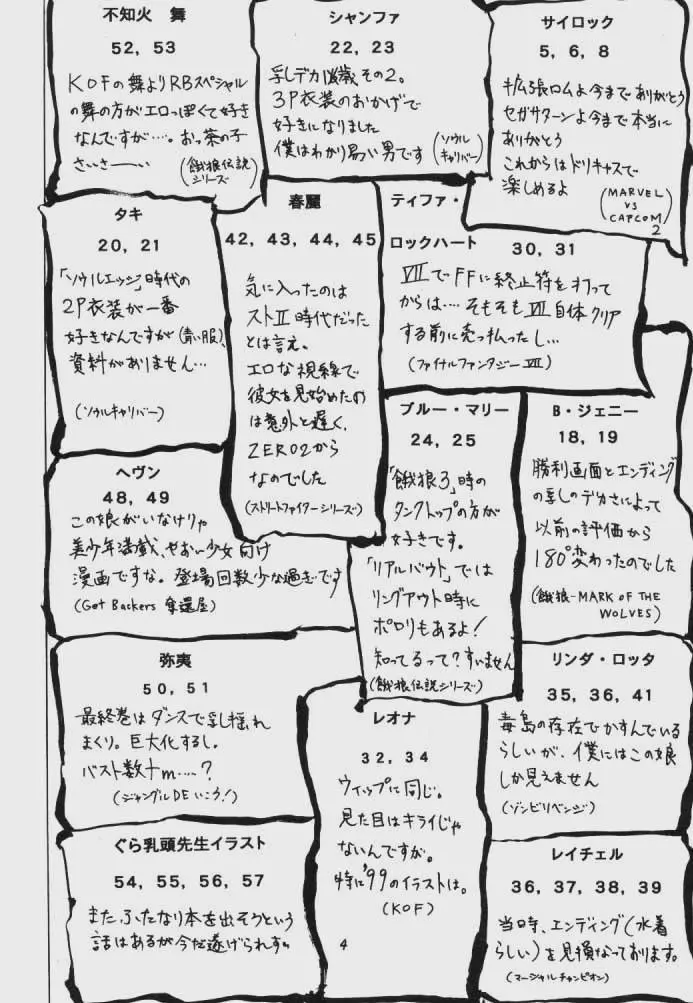 不知火　舞
52, 53
KOFの舞よりRBスペシャル
の舞の方がエロっぽくて好き
なんですが‥‥。お茶の子
さいさーーい
(餓狼伝説
シリーズ)
シャンファ
22, 23
乳デカ
その2。
3P衣装のおかげで
好きになりました
僕はわかり易い男です
(ソウル
キャリバー)
サイロック
5, 6, 8
拡張ロムよ今までありがとう
セガサターンよ今まで本当に
ありがとう
これからはドリキャスで
楽しめるよ
(MARVEL
VS
CAPCOM
2
タキ
20, 21
「ソウルエッジ」時代の
2P衣装が一番
好きなんですが(青い服)、
資料がありません…
(ソウルキャリバー)
春麗
42, 43, 44, 45
気に入ったのは
ストⅡ時代だった
とは言え。
エロな視線で
彼女を見始めたの
は意外と遅く、
ZERO2から
なのでした
(ストリートファイターシリーズ)
ティファ・
ロックハート
30, 31
ⅦでFFに終止符を打って
からは‥‥そもそもⅦ自体クリア
する前に売っ払ったし…
(ファイナルファンタジーⅦ)
ブルー・マリー
24, 25
「餓狼3」時の
タンクトップの方が
好きです。
「リアルバウト」では
リングアウト時に
ポロリもあるよ！
知ってるって？すいません
(餓狼伝説シリーズ)
B・ジェニー
18, 19
勝利画面とエンディング
の乳のデカさによって
以前の評価から
180°変わったのでした
(餓狼-MARK OF THE
WOLVES)
ヘヴン
48, 49
この娘がいなけりゃ
美少年満載、せおい少女向け
漫画ですな。登場回数少な過ぎです
(Get Backers 奪還屋)
弥夷
50, 51
最終巻はダンスで乳揺れ
まくり。巨大化するし。
バスト数十m‥‥？
(ジャングルDEいこう！)
レオナ
32, 34
ウィップに同じ。
見た目はキライじゃ
ないんですが。
特に'99のイラストは。
(KOF)
4
リンダ・ロッタ
35, 36, 41
毒島の存在でかすんでいる
らしいが、僕にはこの娘
しか見えません
(ゾンビリベンジ)
ぐら乳頭先生イラスト
54, 55, 56, 57
またふたなり本を出そうという
話はあるが今だ遂げられず。
レイチェル
36, 37, 38, 39
当時、エンディング(水着
らしい)を見損なっております。
(マーシャルチャンピオン)